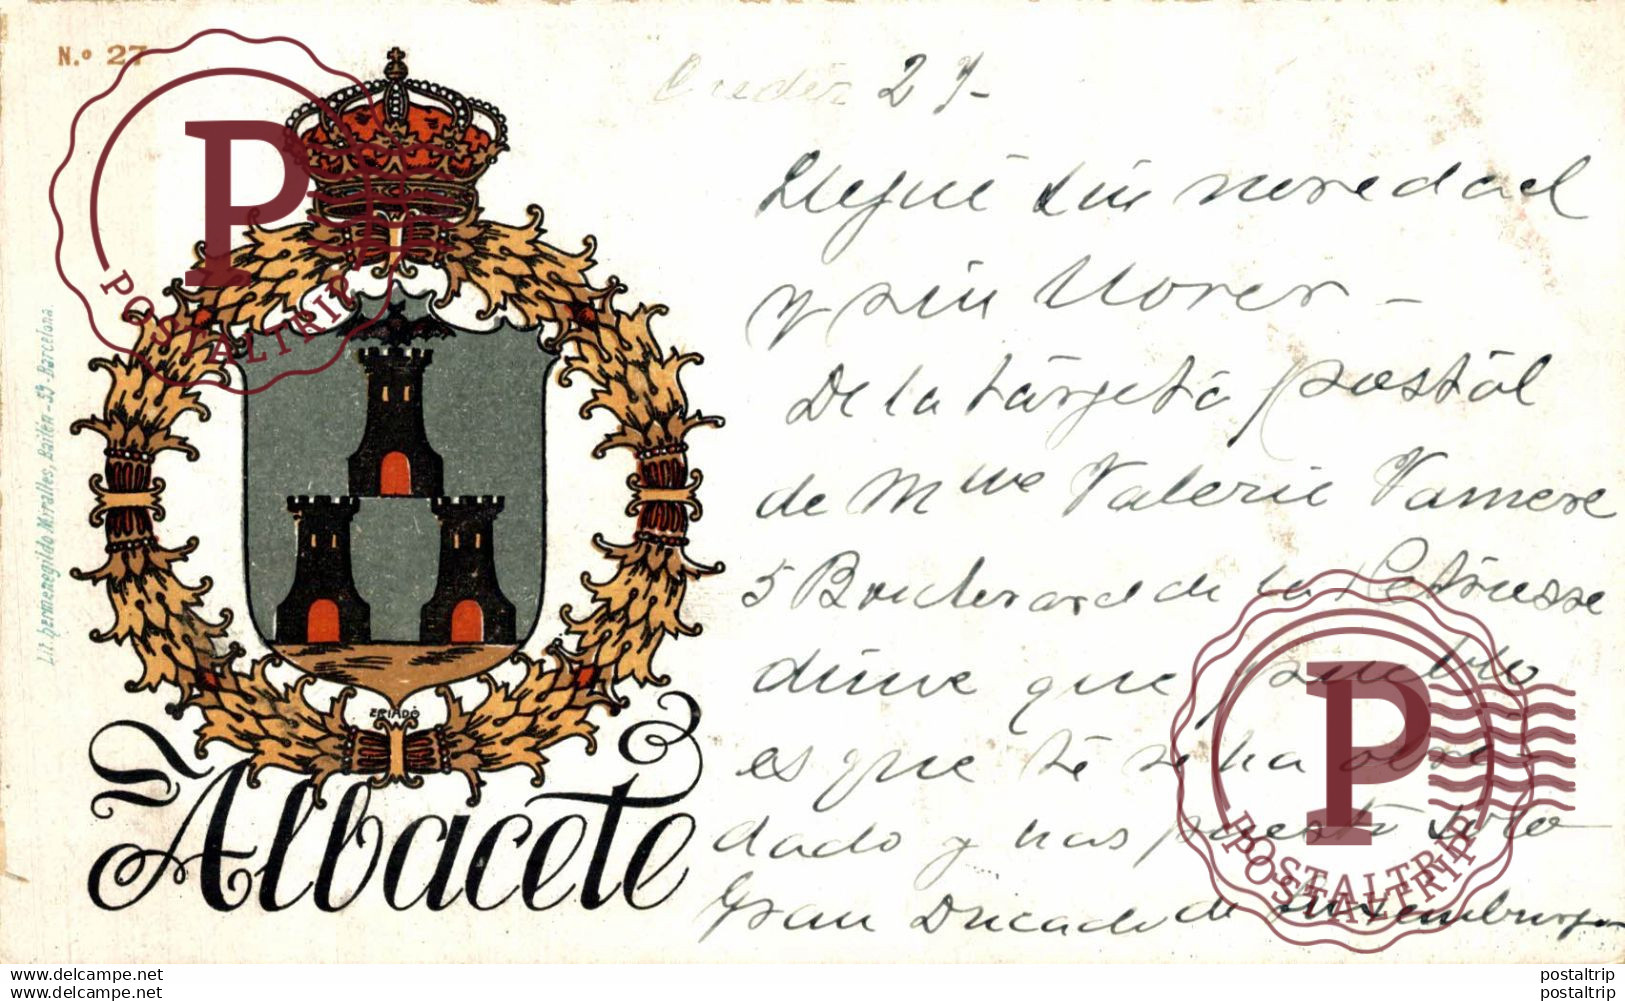 N.º 27
Lit. hermenegildo Miralles, Bailén-59-Barcelona
CRIADÓ
Albacete
27-
Llegué sin novedad
y sin llover -
De la targeta postal
de Mlle Valerie Vamere
5 Boulevard de la Petrusse
dime que pueblo
es que te se ha olvi-
dado y has puesto solo
Gran Ducado de Luxemburgo
P
POSTALTRIP
P
POSTALTRIP
POSTALTRIP
www.delcampe.net
postaltrip
www.delcampe.net
postaltrip